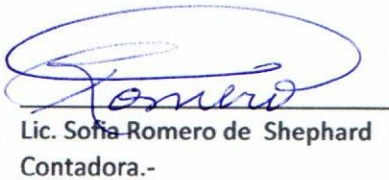 Romero
Lic. Sofia Romero de Shephard
Contadora.-